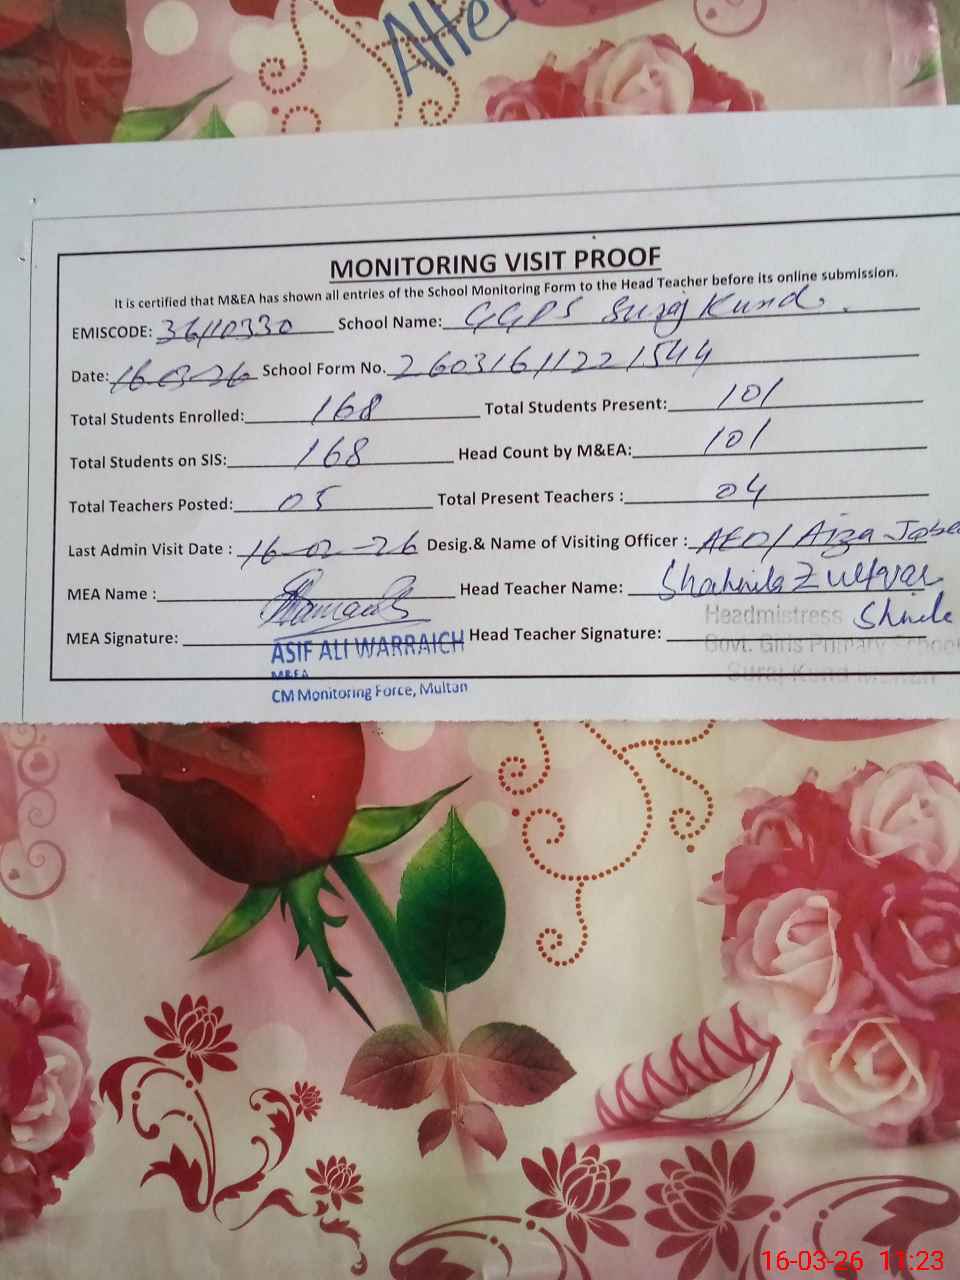 Atten
MONITORING VISIT PROOF
It is certified that M&EA has shown all entries of the School Monitoring Form to the Head Teacher before its online submission.
EMISCODE: 36110330 School Name: GGPS Suraj Kund.
Date: 16-03-26 School Form No. 26031611221544
Total Students Enrolled: 168 Total Students Present: 101
Total Students on SIS: 168 Head Count by M&EA: 101
Total Teachers Posted: 05 Total Present Teachers : 04
Last Admin Visit Date : 16-02-26 Desig.& Name of Visiting Officer : AEO/ Aiza Jabe
MEA Name : Head Teacher Name: Shahnila Zulfqar
MEA Signature: Head Teacher Signature:
ASIF ALI WARRAICH
M&EA
CM Monitoring Force, Multan
Headmistress
Govt. Girls Primary School
Suraj Kund Multan
16-03-26 11:23